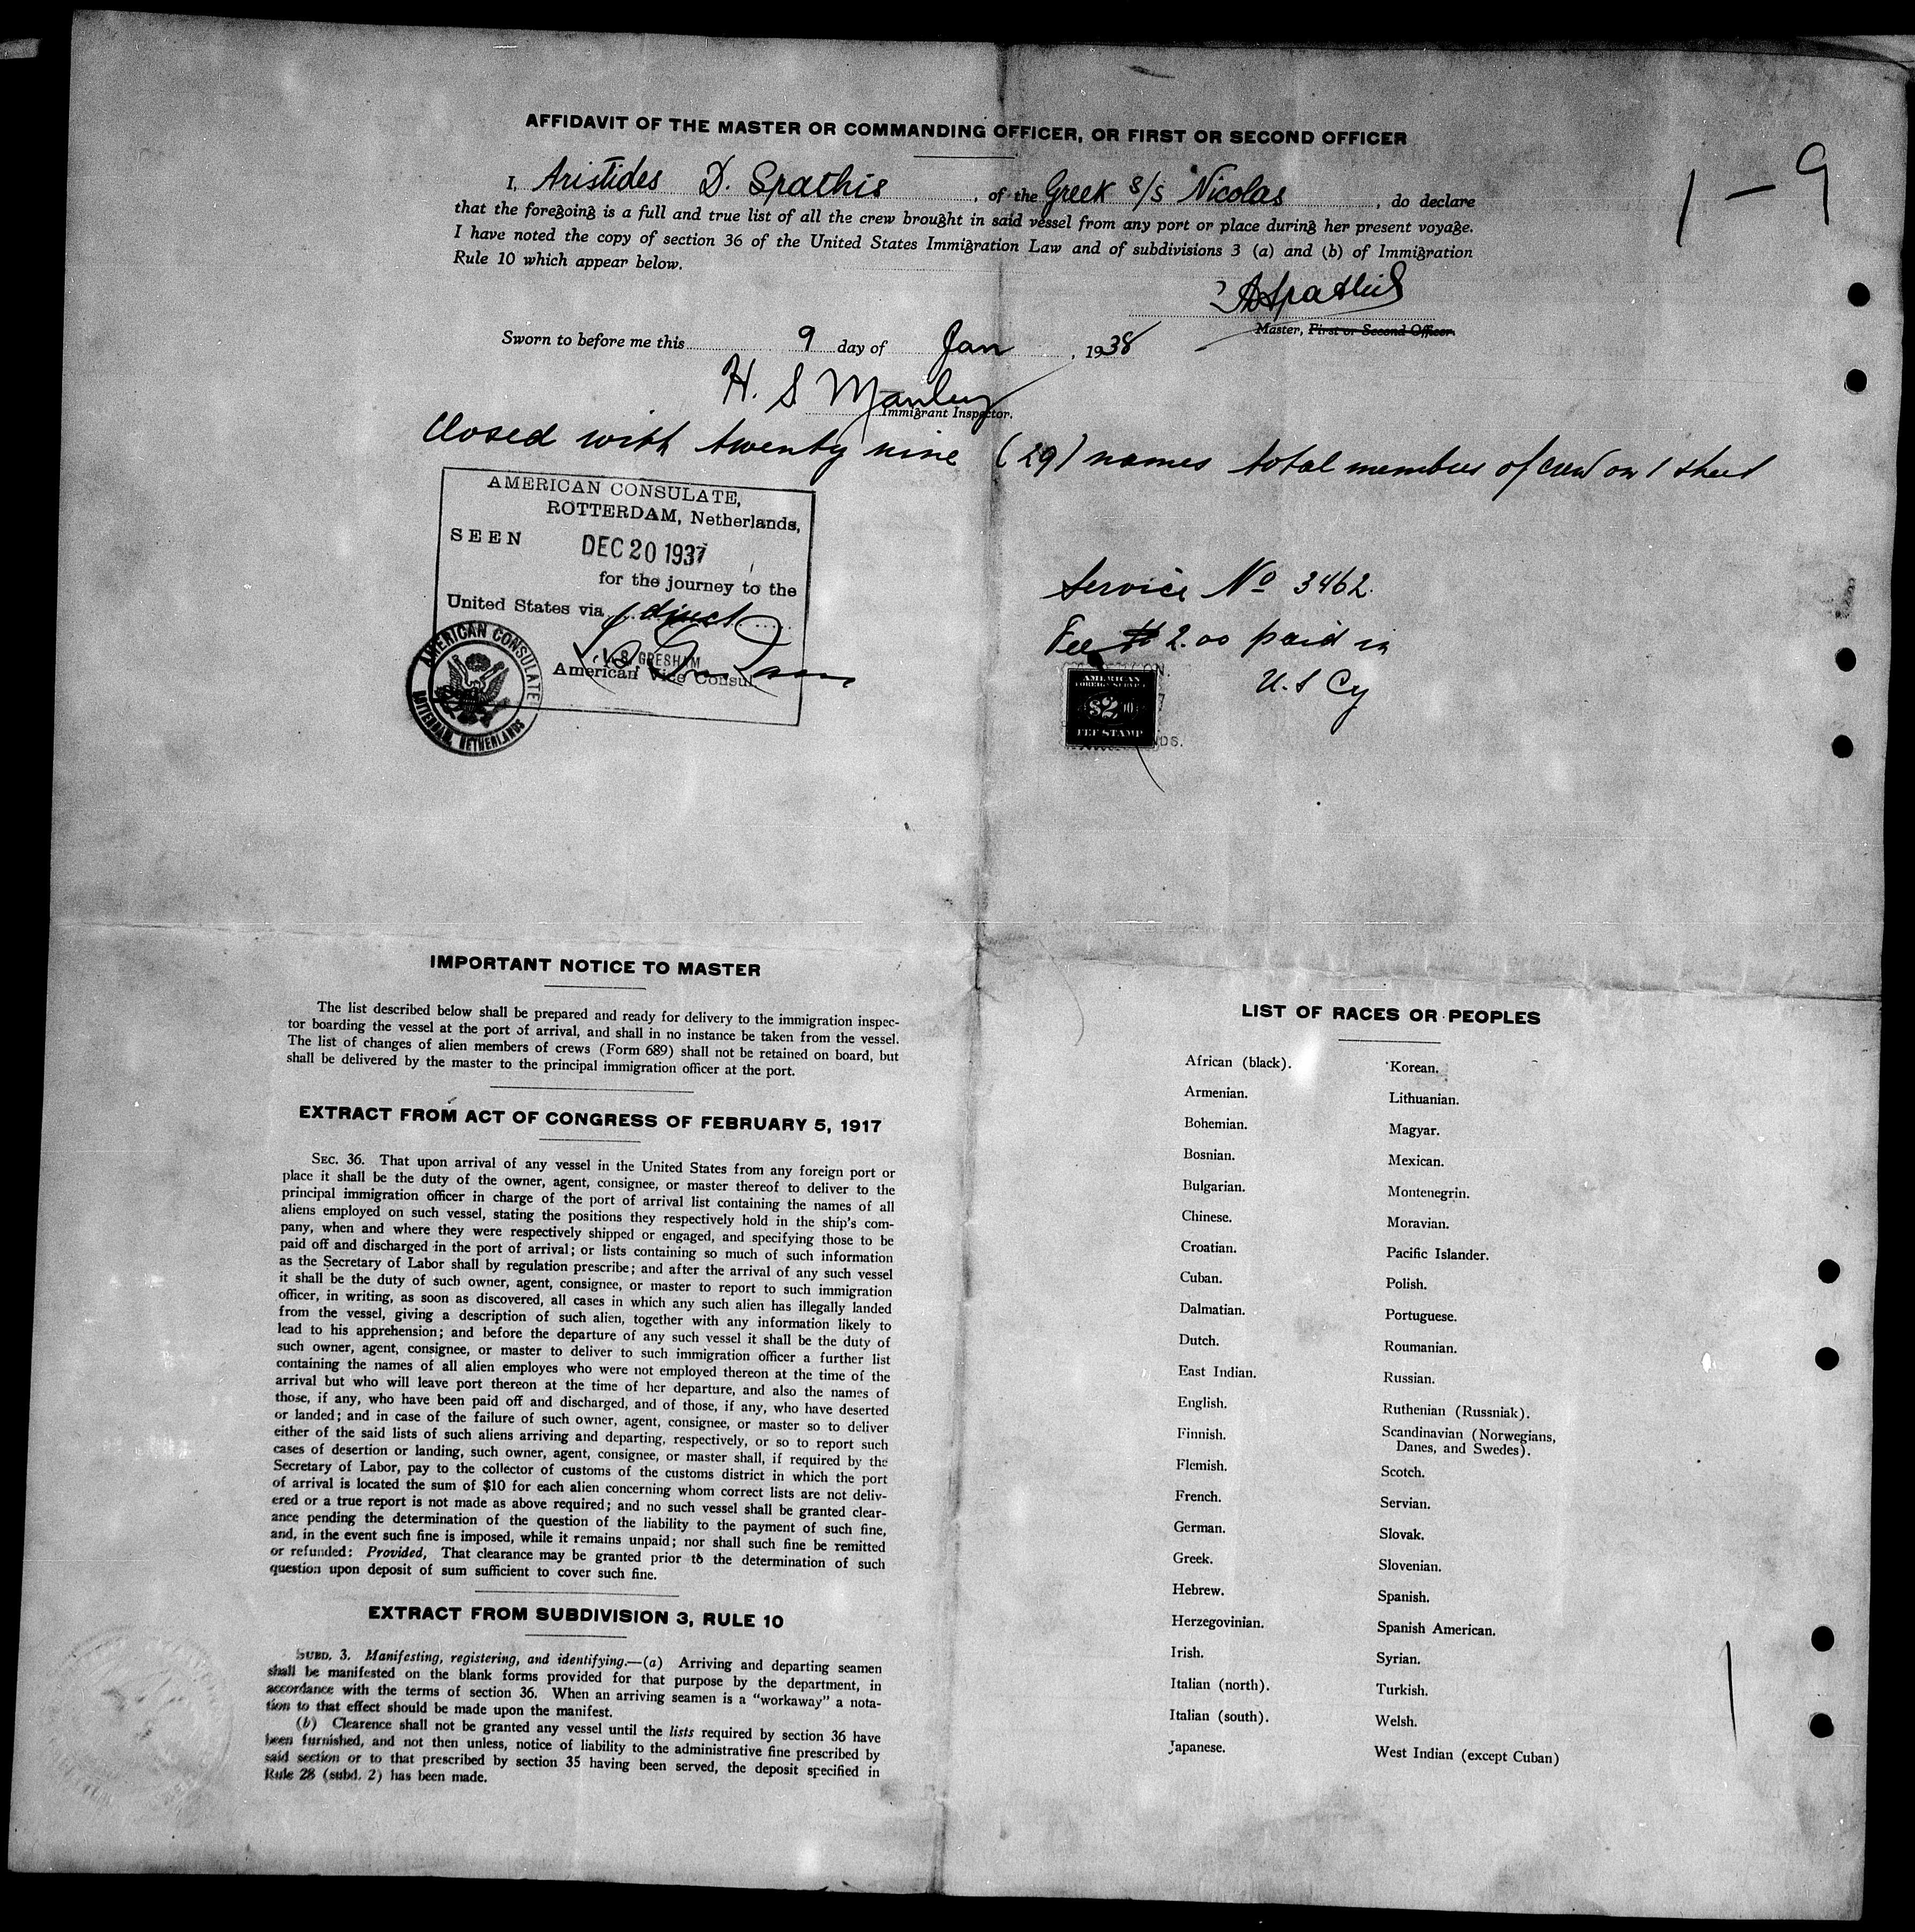 AFFIDAVIT OF THE MASTER OR COMMANDING OFFICER, OR FIRST OR SECOND OFFICER
1-9
I, Aristides D. Spathis, of the Greek s/s Nicolas, do declare
that the foregoing is a full and true list of all the crew brought in said vessel from any port or place during her present voyage.
I have noted the copy of section 36 of the United States Immigration Law and of subdivisions 3 (a) and (b) of Immigration
Rule 10 which appear below.
ADSpathis
Master, First or Second Officer.
Sworn to before me this 9 day of Jan, 1938
H. S Manley
Immigrant Inspector.
Closed with twenty nine (29) names total members of crew on 1 sheet
AMERICAN CONSULATE,
ROTTERDAM, Netherlands,
SEEN DEC 20 1937
for the journey to the
United States via direct
GRESHAM
American Vice Consul
AMERICAN CONSULATE
ROTTERDAM, NETHERLANDS
Service No 3462
Fee $2.00 paid in
U.S Cy
AMERICAN
FOREIGN SERVICE
$2.00
FEE STAMP
IMPORTANT NOTICE TO MASTER
The list described below shall be prepared and ready for delivery to the immigration inspec-
tor boarding the vessel at the port of arrival, and shall in no instance be taken from the vessel.
The list of changes of alien members of crews (Form 689) shall not be retained on board, but
shall be delivered by the master to the principal immigration officer at the port.
EXTRACT FROM ACT OF CONGRESS OF FEBRUARY 5, 1917
SEC. 36. That upon arrival of any vessel in the United States from any foreign port or
place it shall be the duty of the owner, agent, consignee, or master thereof to deliver to the
principal immigration officer in charge of the port of arrival list containing the names of all
aliens employed on such vessel, stating the positions they respectively hold in the ship's com-
pany, when and where they were respectively shipped or engaged, and specifying those to be
paid off and discharged in the port of arrival; or lists containing so much of such information
as the Secretary of Labor shall by regulation prescribe; and after the arrival of any such vessel
it shall be the duty of such owner, agent, consignee, or master to report to such immigration
officer, in writing, as soon as discovered, all cases in which any such alien has illegally landed
from the vessel, giving a description of such alien, together with any information likely to
lead to his apprehension; and before the departure of any such vessel it shall be the duty of
such owner, agent, consignee, or master to deliver to such immigration officer a further list
containing the names of all alien employes who were not employed thereon at the time of the
arrival but who will leave port thereon at the time of her departure, and also the names of
those, if any, who have been paid off and discharged, and of those, if any, who have deserted
or landed; and in case of the failure of such owner, agent, consignee, or master so to deliver
either of the said lists of such aliens arriving and departing, respectively, or so to report such
cases of desertion or landing, such owner, agent, consignee, or master shall, if required by the
Secretary of Labor, pay to the collector of customs of the customs district in which the port
of arrival is located the sum of $10 for each alien concerning whom correct lists are not deliv-
ered or a true report is not made as above required; and no such vessel shall be granted clear-
ance pending the determination of the question of the liability to the payment of such fine,
and, in the event such fine is imposed, while it remains unpaid; nor shall such fine be remitted
or refunded: Provided, That clearance may be granted prior to the determination of such
question upon deposit of sum sufficient to cover such fine.
EXTRACT FROM SUBDIVISION 3, RULE 10
SUBD. 3. Manifesting, registering, and identifying.—(a) Arriving and departing seamen
shall be manifested on the blank forms provided for that purpose by the department, in
accordance with the terms of section 36. When an arriving seamen is a "workaway" a nota-
tion to that effect should be made upon the manifest.
(b) Clearence shall not be granted any vessel until the lists required by section 36 have
been furnished, and not then unless, notice of liability to the administrative fine prescribed by
said section or to that prescribed by section 35 having been served, the deposit specified in
Rule 28 (subd. 2) has been made.
LIST OF RACES OR PEOPLES
African (black).
Armenian.
Bohemian.
Bosnian.
Bulgarian.
Chinese.
Croatian.
Cuban.
Dalmatian.
Dutch.
East Indian.
English.
Finnish.
Flemish.
French.
German.
Greek.
Hebrew.
Herzegovinian.
Irish.
Italian (north).
Italian (south).
Japanese.
Korean.
Lithuanian.
Magyar.
Mexican.
Montenegrin.
Moravian.
Pacific Islander.
Polish.
Portuguese.
Roumanian.
Russian.
Ruthenian (Russniak).
Scandinavian (Norwegians,
Danes, and Swedes).
Scotch.
Servian.
Slovak.
Slovenian.
Spanish.
Spanish American.
Syrian.
Turkish.
Welsh.
West Indian (except Cuban)
1